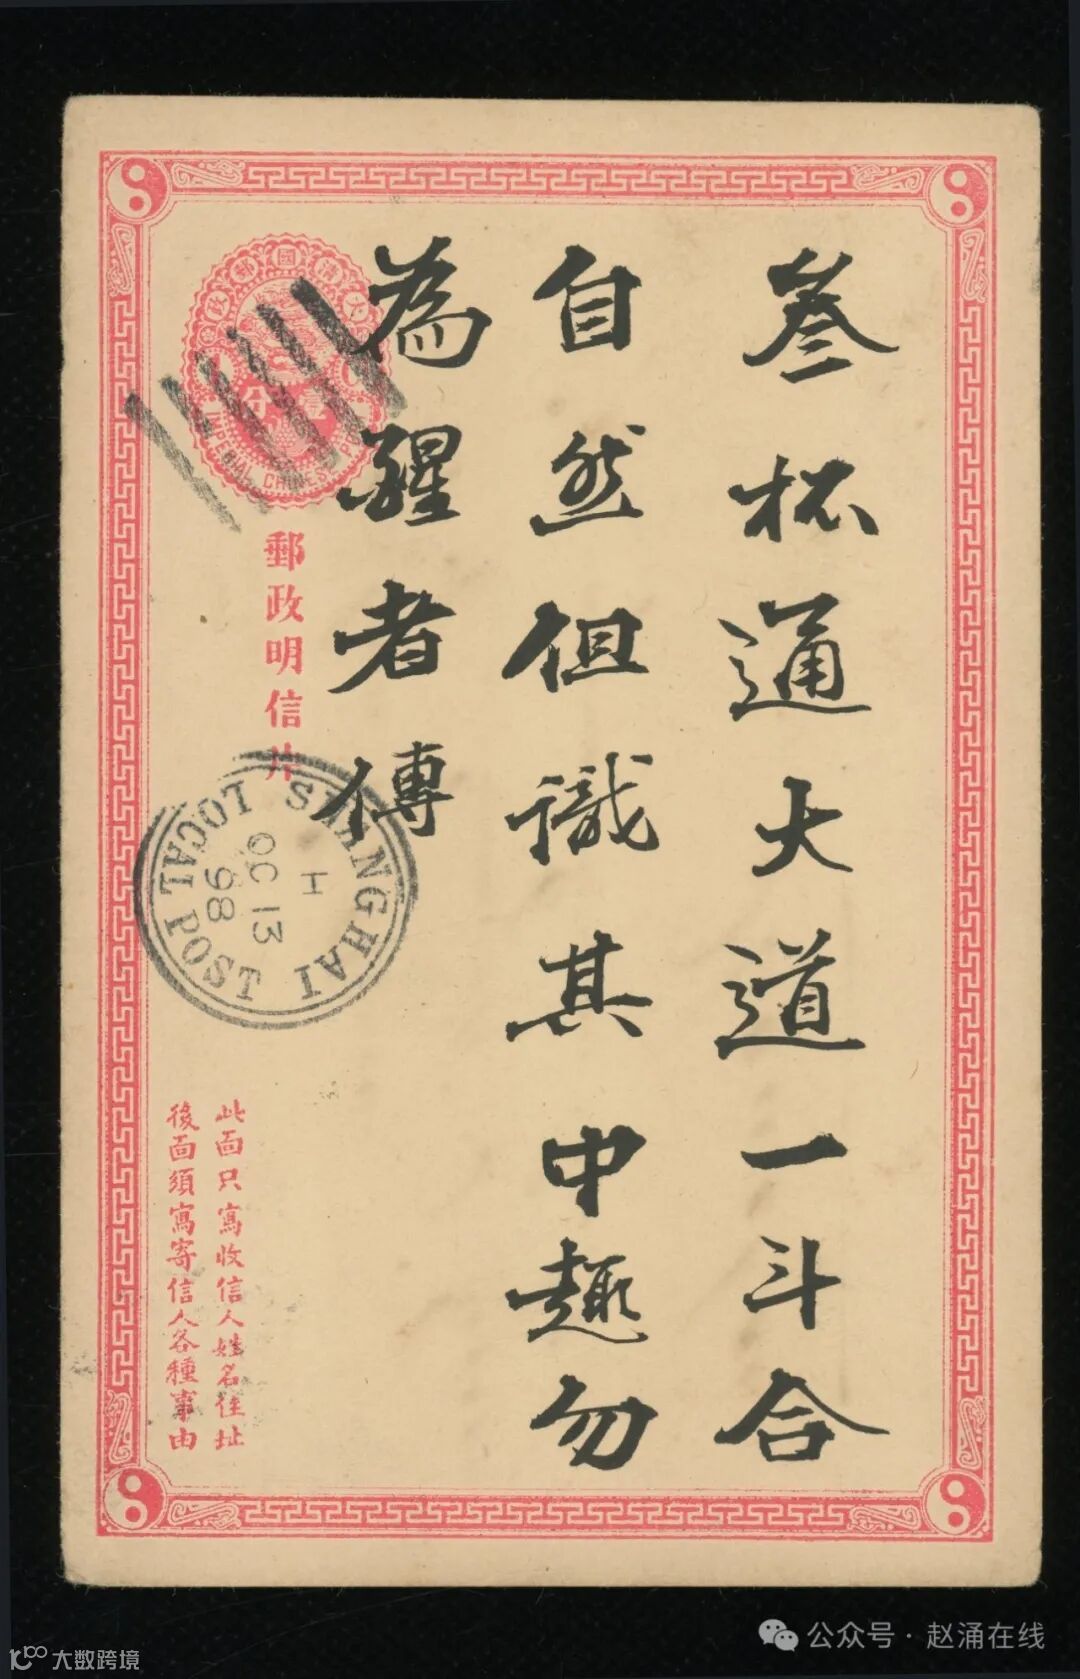 叁杯通大道一斗合
自然但識其中趣勿
為醒者傳
大清國郵政
壹分
IMPERIAL CHINESE
郵政明信片
SHANGHAI LOCAL POST
H
OC 13
98
此面只寫收信人姓名住址
後面須寫寄信人各種事由
公众号·赵涌在线
大数跨境